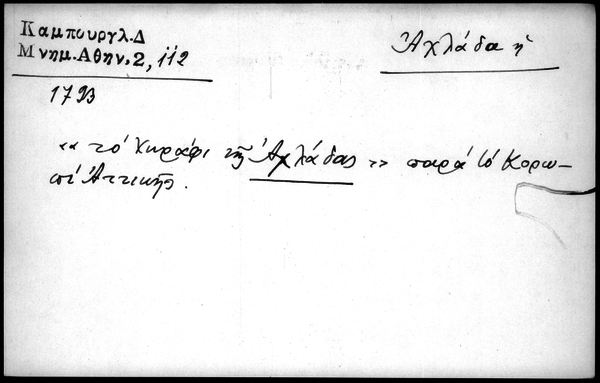 Καμπουργλ.Δ
Μνημ.Αθην.2, 112
Ἀχλάδα ἡ
1793
«τὸ χωράφι τῆς Ἀχλάδας» παρὰ τὸ Κορω-
πὶ Ἀττικῆς.